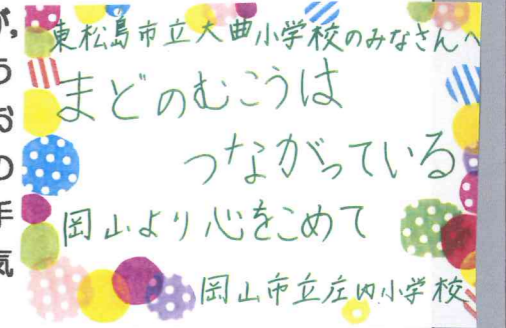 東松島市立大曲小学校のみなさんへ
まどのむこうは
つながっている
岡山より心をこめて
岡山市立庄内小学校
が,
う
お
の
手
気